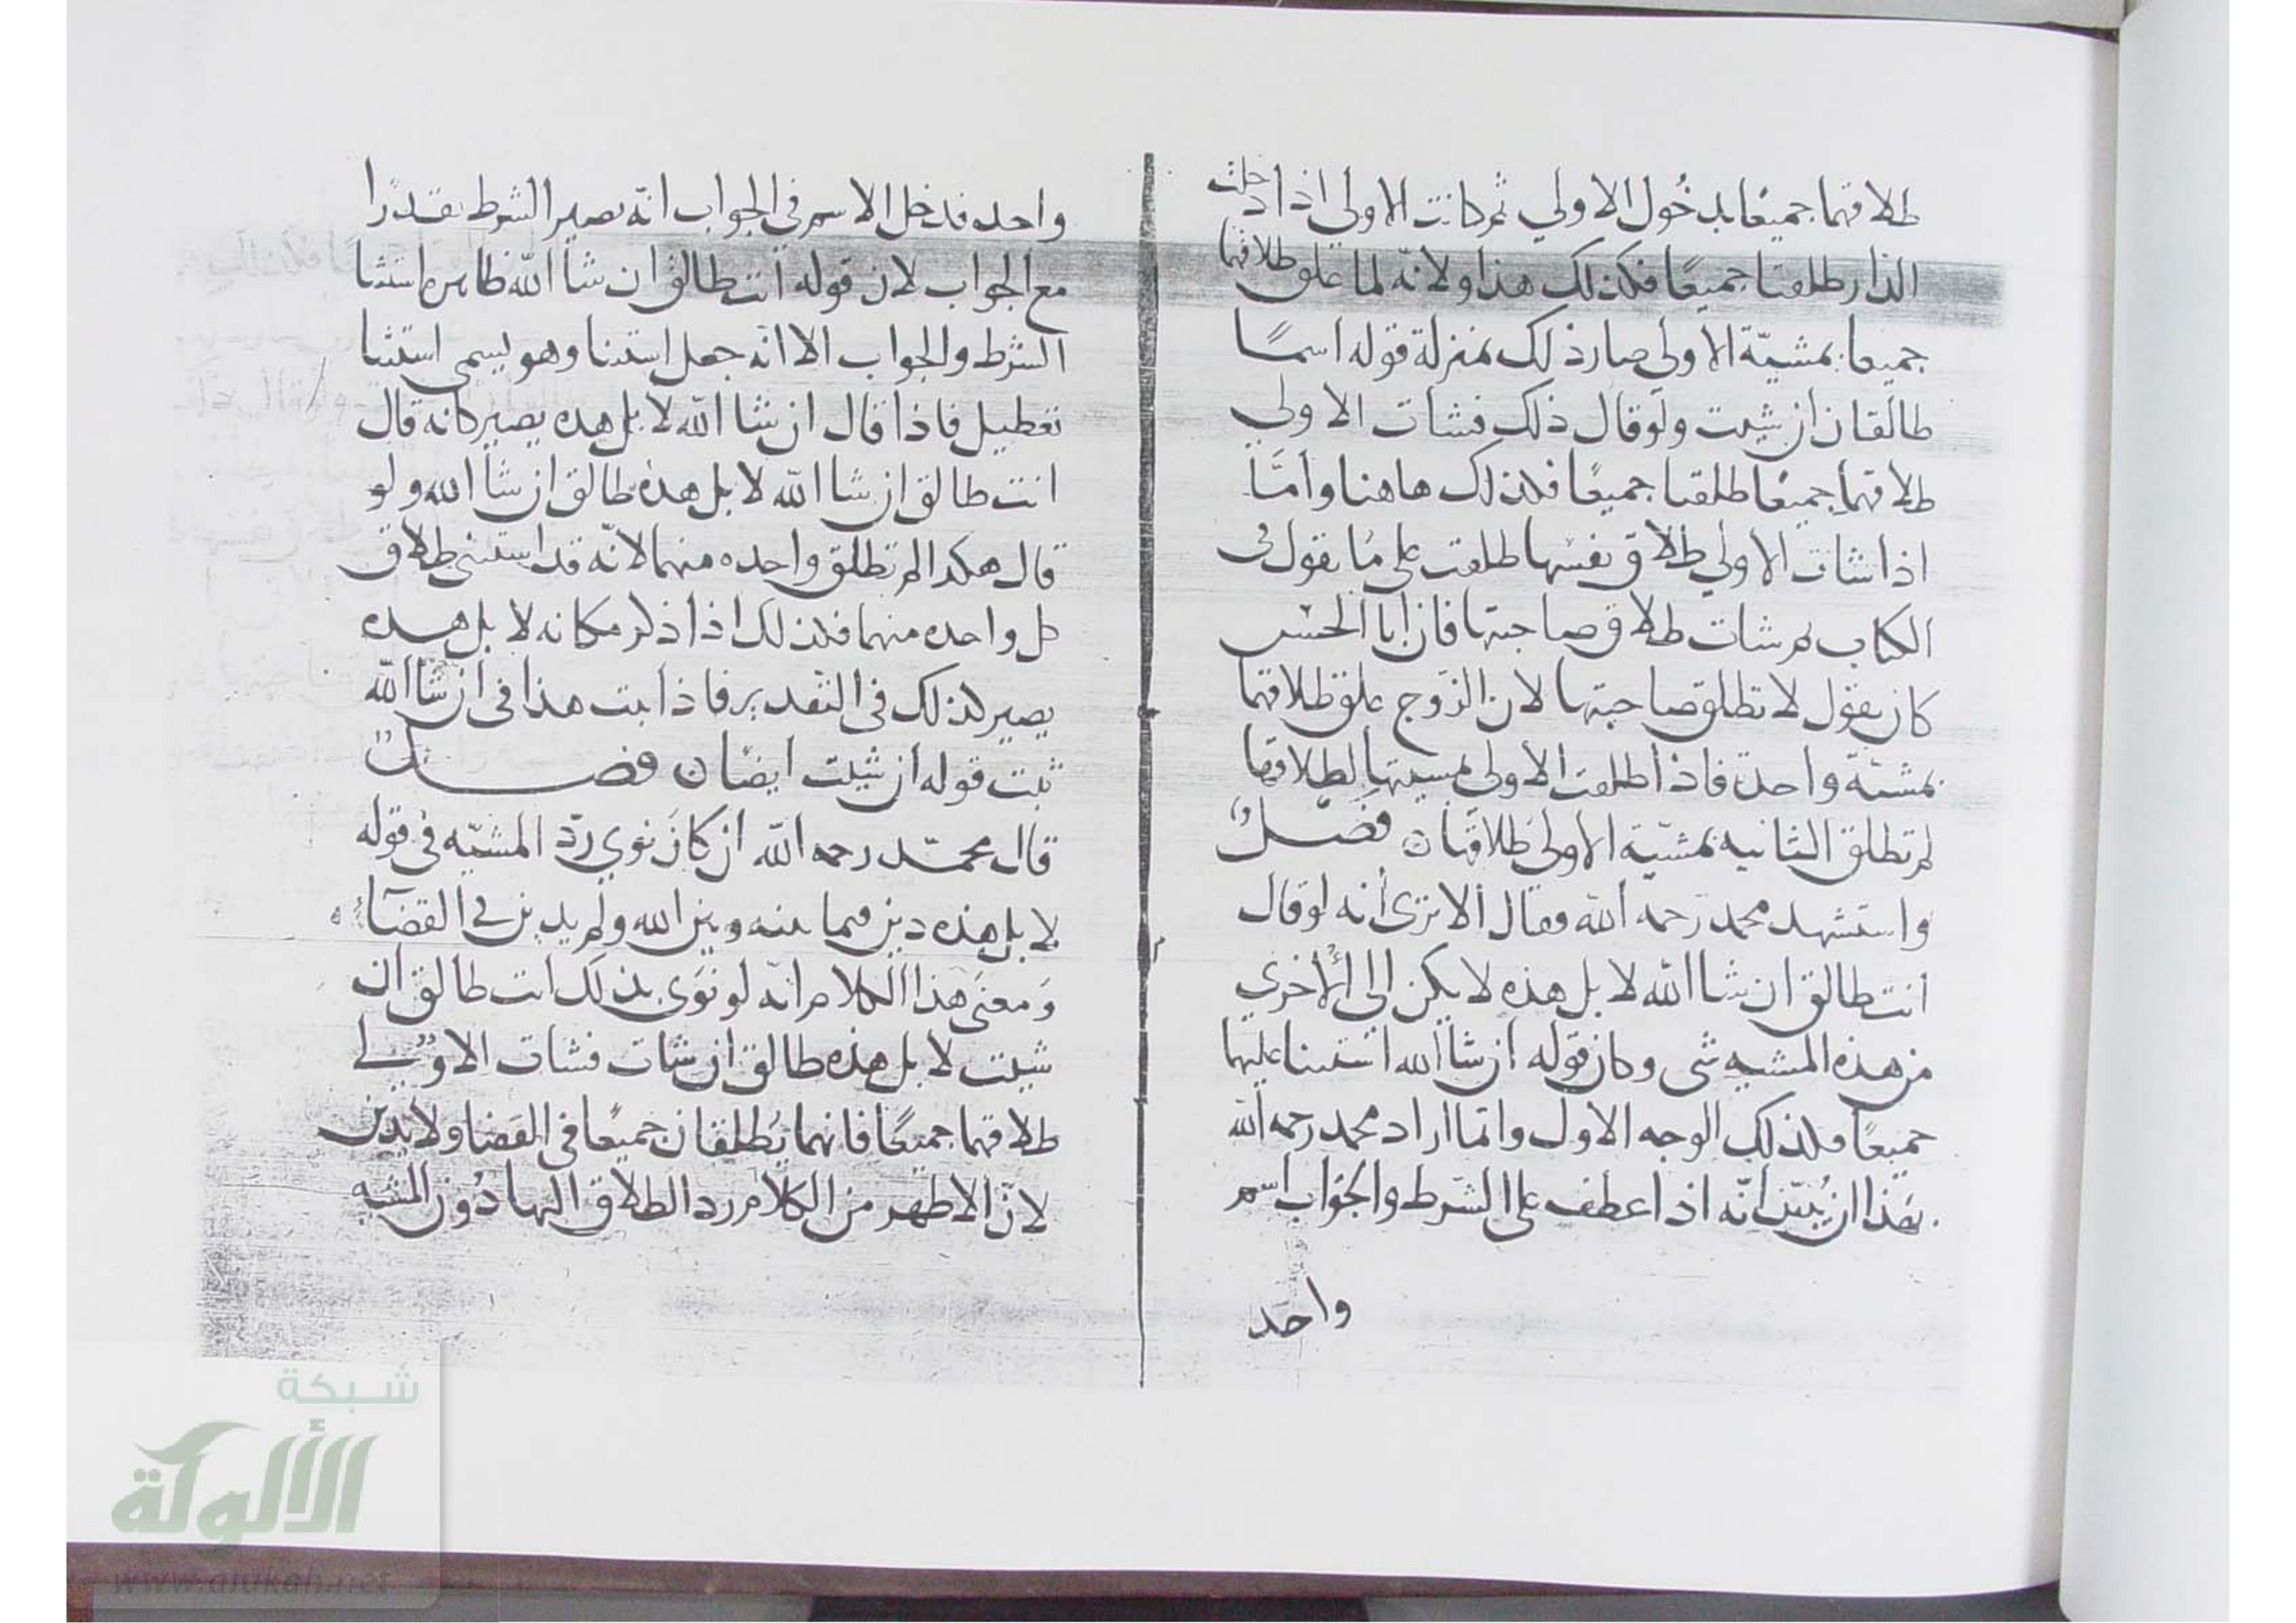 طلاقهما جميعًا بدخُول الاولي ثم كانت الاولى اذا دخلت
الدار طلقتا جميعًا فكذلك هذا ولانّه لما علق طلاقهما
جميعا بمشيّة الاولى صار ذلك بمنزلة قوله اسمًا
طالقان ان شيت ولو قال ذلك فشات الاولي
طلاقهما جميعًا طلقتا جميعًا فكذلك هاهنا وامّا
اذا شات الاولي طلاق نفسها طلقت على ما يقول في
الكتاب ثم شات طلاق صاحبتها فان ابا الحسن
كان يقول لا تطلق صاحبتها لان الزوج علق طلاقهما
بمشيّة واحدة فاذا طلقت الاولى بمشيتها لطلاقها
لم تطلق الثانيه بمشيّة الاولى طلاقها ن فصل
واستشهد محمد رحمه الله وقال الا ترى أنه لو قال
أنت طالق ان شا الله لا بل هذه لا يكن الى الأخري
من هذه المشيه شى وكان قوله ان شا الله استثنا عليهما
جميعًا فكذلك الوجه الاول وانما اراد محمد رحمه الله
بهذا ان يُبيّن انّه اذا عطف على الشرط والجواب اسم
واحد
واحده فدخل الاسم في الجواب انّه يصير الشرط مقدرًا
مع الجواب لان قوله أنت طالق ان شا الله ظاهره استثنا
الشرط والجواب الا انه جعل استثنا وهو يسمى استثنا
تعطيل فاذا قال ان شا الله لا بل هده يصير كانه قال
انت طالق ان شا الله لا بل هده طالق ان شا الله ولو
قال هكدا لم تطلق واحده منهما لانّه قد استثنى طلاق
كل واحده منهما فكذلك اذا ذكر مكانه لا بل هده
يصير كذلك في التقدير فاذا ثبت هذا في ان شا الله
ثبت قوله ان شيت ايضا ن فصل
قال محمّد رحمه الله ان كان نوي ردّ المشيّه في قوله
لا بل هذه دين فيما بينه وبين الله ولم يدين في القضاء
ومعنى هذا الكلام انّه لو نوَى بذلك انت طالق ان
شيت لا بل هذه طالق ان شات فشات الاولي
طلاقهما جميعًا فانهما يُطلقان جميعًا في القضا ولا يديّن
لانّ الاظهر من الكلام رد الطلاق اليها دُون المشيه
شبكة
الألوكة
www.alukah.net